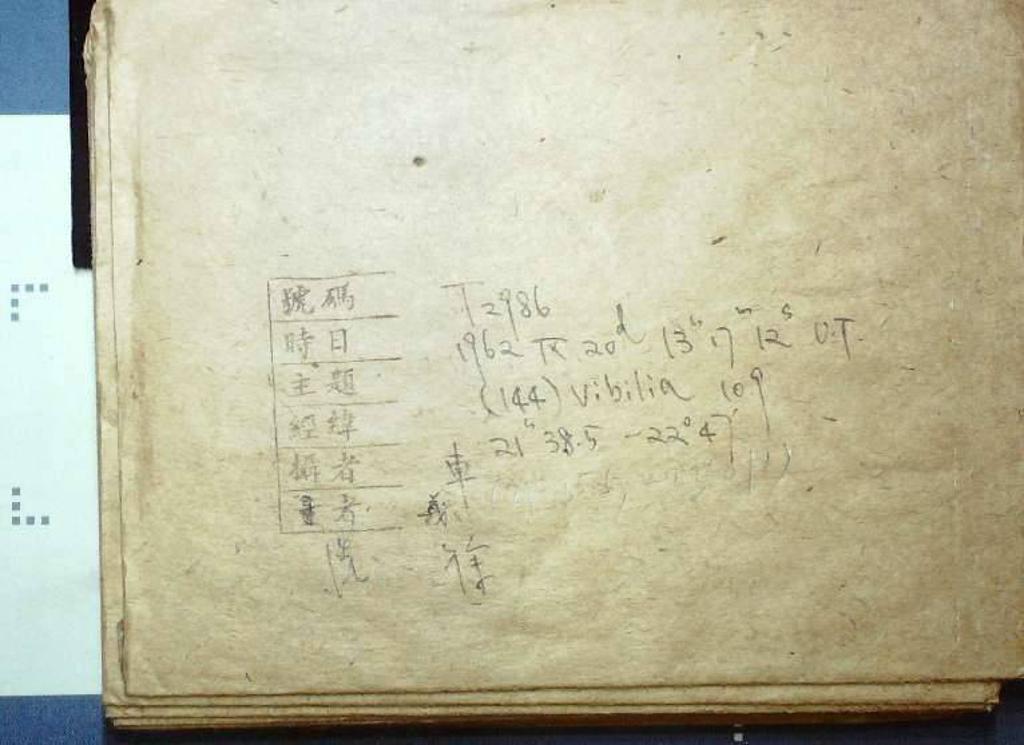 號碼 T 2986
時日 1962 IX 20d 13h 17m 12s U.T.
主題 (144) Vibilia 10.9
經緯 21h 38.5 -22°47'
攝者 車
量者 義
洗 徐